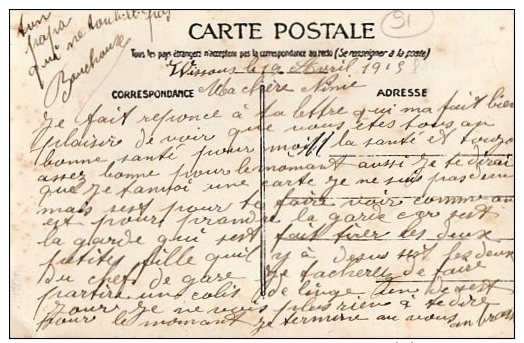 ton
papa
qui ne toublie pas
Bouchaux
91
CARTE POSTALE
Tous les pays étrangers n'acceptent pas la correspondance au recto (Se renseigner à la poste)
Wissous le 19 Avril 1915
CORRESPONDANCE
ADRESSE
Ma chère Ninie
Je fait reponce à ta lettre qui ma fait bien
plaisir de voir que vous êtes tous en
bonne santé pour moi la santé et
assez bonne pour le momant aussi je te dirai
que je tanvoi une carte je ne suis pas
mais sest pour te faire voir comme on
est pour prandre la garde car sest
la garde qui sest fait tirer les deux
petites fille qui y à desu sest les deux
du chef de gare je tacherer de faire
partire un colis de linge
jour je ne vois plus rien à te dire
pour le momant je termine au vous
anbrass